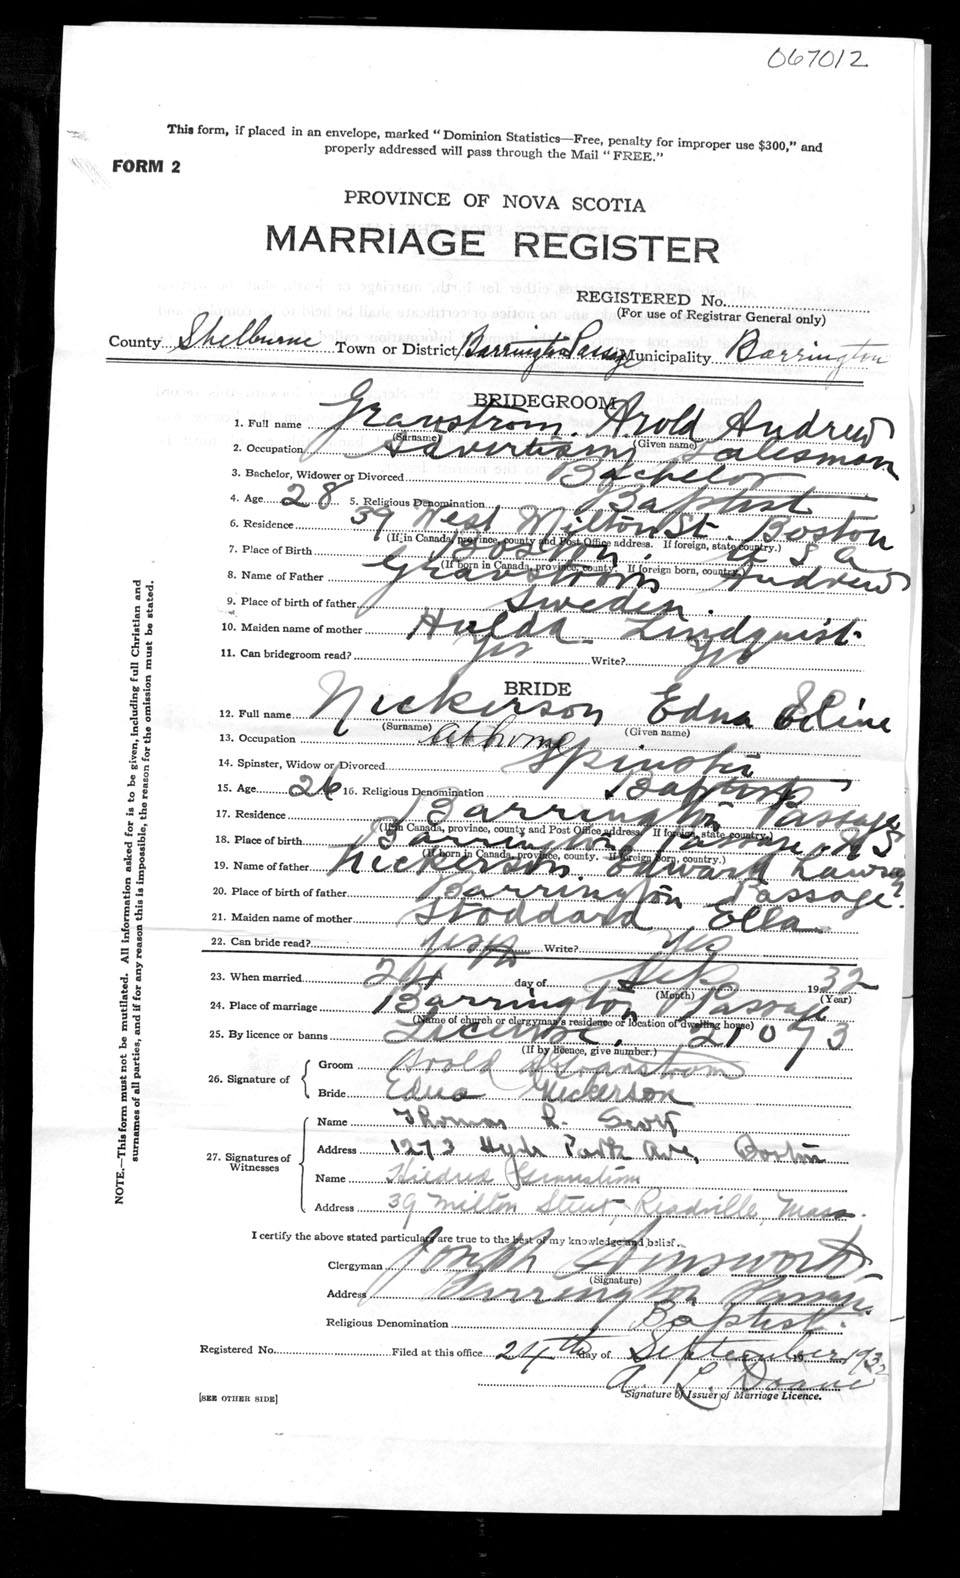 067012
This form, if placed in an envelope, marked "Dominion Statistics—Free, penalty for improper use $300," and
properly addressed will pass through the Mail "FREE."
FORM 2
PROVINCE OF NOVA SCOTIA
MARRIAGE REGISTER
REGISTERED No.
(For use of Registrar General only)
County Shelburne Town or District Barrington Passage Municipality Barrington
BRIDEGROOM
1. Full name Granstrom Arold Andrew
(Surname) (Given name)
2. Occupation Advertising Salesman
3. Bachelor, Widower or Divorced Bachelor
4. Age 28 5. Religious Denomination Baptist
6. Residence 39 West Milton St. Boston
(If in Canada, province, county and Post Office address. If foreign, state country.)
7. Place of Birth Boston U S A
(If born in Canada, province, county. If foreign born, country.)
8. Name of Father Granstrom Andrew
9. Place of birth of father Sweden.
10. Maiden name of mother Hulda Lindquist
11. Can bridegroom read? yes Write? yes
BRIDE
12. Full name Nickerson Edna Eline
(Surname) (Given name)
13. Occupation at home
14. Spinster, Widow or Divorced Spinster
15. Age 26 16. Religious Denomination Baptist
17. Residence Barrington Passage
(If in Canada, province, county and Post Office address. If foreign, state country.)
18. Place of birth Barrington Passage N S
(If born in Canada, province, county. If foreign born, country.)
19. Name of father Nickerson. Edward
20. Place of birth of father Barrington Passage
21. Maiden name of mother Stoddard Ella
22. Can bride read? yes Write? yes
23. When married 24 day of Sep 1932
(Month) (Year)
24. Place of marriage Barrington Passage
(Name of church or clergyman's residence or location of dwelling house)
25. By licence or banns License. 21073
(If by licence, give number.)
26. Signature of
Groom Arold Granstrom
Bride Edna Nickerson
27. Signatures of Witnesses
Name Thomas R. Scott
Address 1273 Hyde Park Ave, Boston
Name Hildred Granstrom
Address 39 Milton Street, Readville, Mass.
I certify the above stated particulars are true to the best of my knowledge and belief.
Clergyman Joseph
(Signature)
Address Barrington Passage
Religious Denomination Baptist.
Registered No. Filed at this office 24th day of September 19 1932
A. L. Doane
Signature of Issuer of Marriage Licence.
[SEE OTHER SIDE]
NOTE.—This form must not be mutilated. All information asked for is to be given, including full Christian and
surnames of all parties, and if for any reason this is impossible, the reason for the omission must be stated.